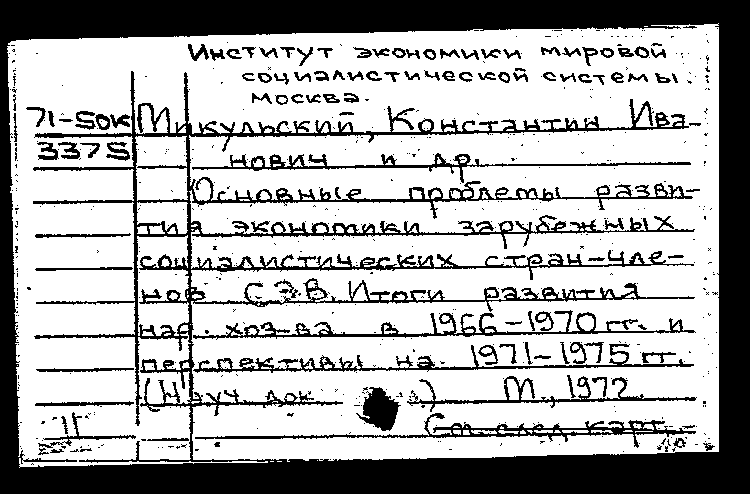 Институт экономики мировой
социалистической системы.
Москва.
71-SOK Микульский, Константин Ива-
3375 нович и др.
Основные проблемы разви-
тия экономики зарубежных
социалистических стран-чле-
нов СЭВ. Итоги развития
нар. хоз-ва в 1966-1970 гг. и
перспективы на 1971-1975 гг.
(Науч. док ) М., 1972.
См. след. карт.